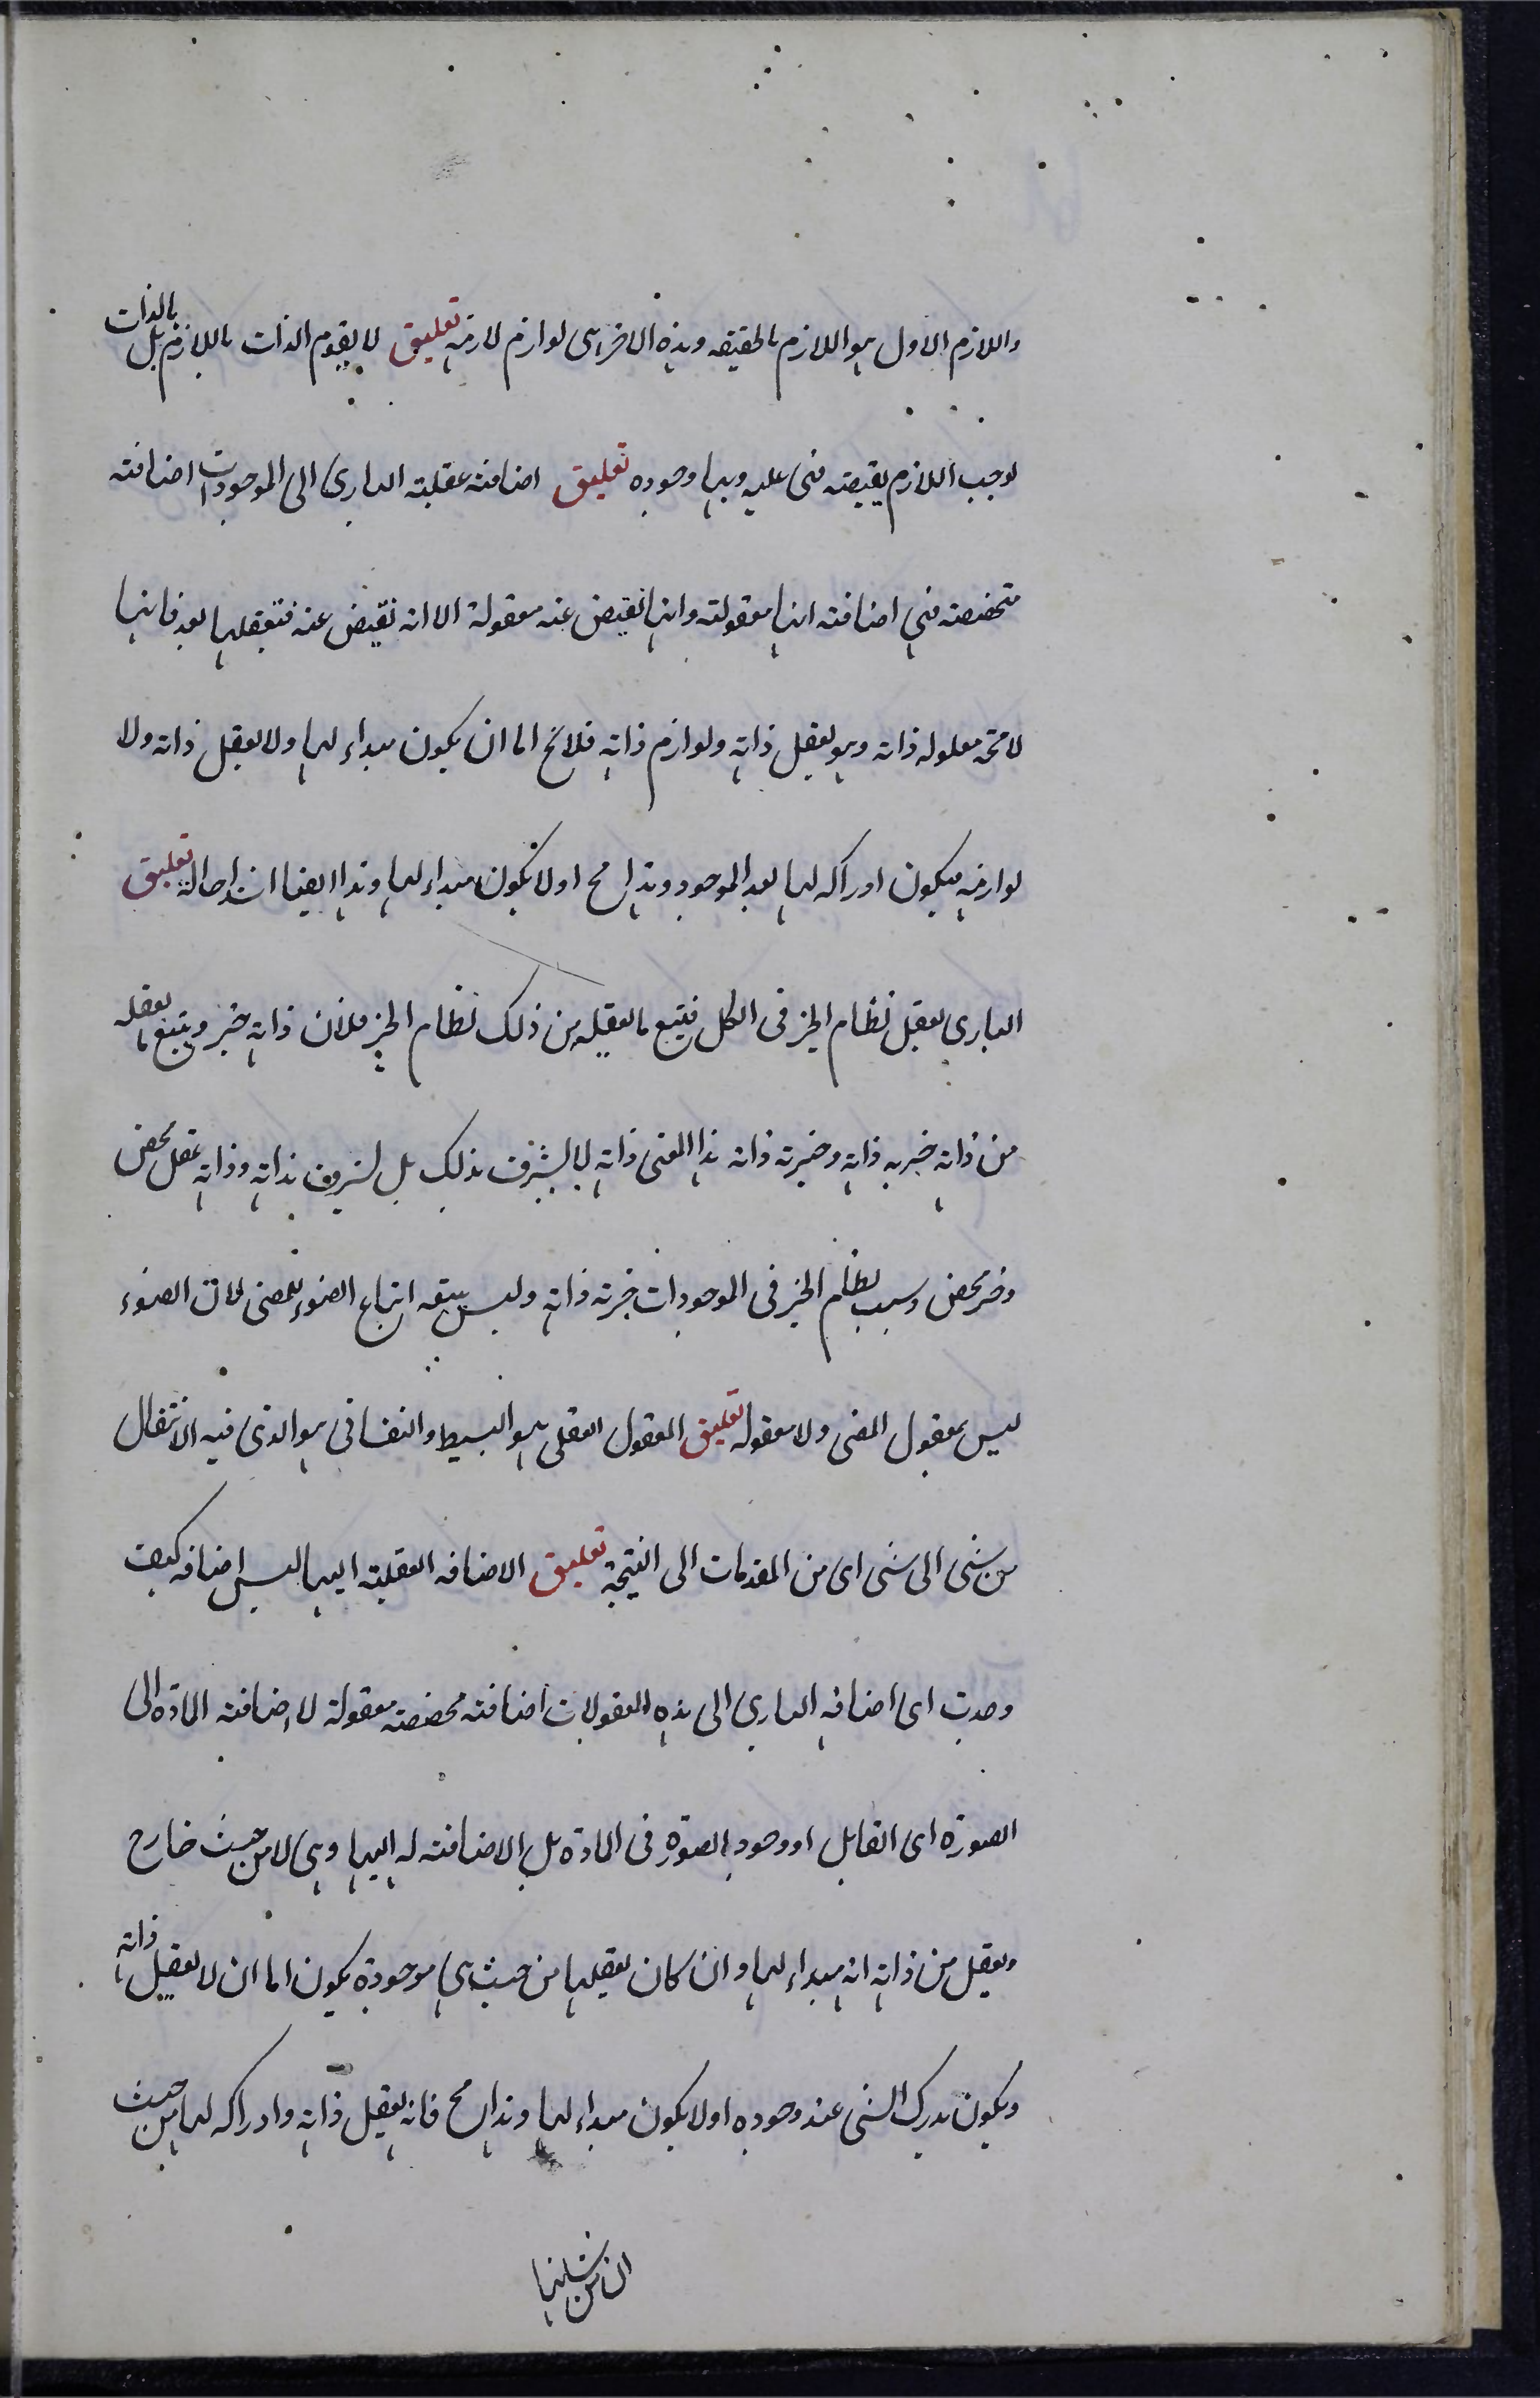 واللازم الاول هو اللازم بالحقيقه وهذه الاخر هى لوازم لازمه تعليق لا يقوم الذات باللازم بل بالذات
لوجب اللازم يقيضه فى عليه وبها وجوده تعليق اضافة عقلية البارى الى الموجودات اضافة
متخصصه فهى اضافة انها معقولة وانها تفيض عنه معقولة الا انه تفيض عنه فتعقلها بعد فانها
لا محة معلوله ذاته وهو يعقل ذاته ولوازم ذاته فلا يخ اما ان يكون مبداء لها ولا يعقل ذاته ولا
لوازمه فيكون ادراكه لها بعد الموجود وهذا مح او لا يكون مبداء لها وهذا ايضا اشد احالة تعليق
البارى يعقل نظام الخير فى الكل فيتبع ما يعقله من ذلك نظام الخير فلان ذاته خير ويتبع ما يعقله
من ذاته خيريه ذاته وخيرية ذاته هذا المعنى ذاته لا يشرف بذلك بل لشرف بذاته وذاته عقل محض
وخير محض وسبب نظام الخير فى الموجودات خيرية ذاته وليس يتبعه اتباع الضوء للمضى لان الضوء
ليس بمعقول المضى ولا معقوله تعليق المعقول العقلى هو البسيط والنفسانى هو الذى فيه الانتقال
من شى الى شى اى من المقدمات الى النتيجة تعليق الاضافه العقلية اليها ليس اضافه كيف
وجدت اى اضافه البارى الى هذه المعقولات اضافة محضة معقولة لا اضافة المادة الى
الصورة اى القابل او وجود الصورة فى المادة بل الاضافة له اليها وهى لا من حيث خارج
ويعقل من ذاته انه مبداء لها وان كان يعقلها من حيث هى موجودة يكون اما ان لا يعقل ذاته
ويكون يدرك الشى عند وجوده او لا يكون مبداء لها وهذا مح فانه يعقل ذاته وادراكه لها من حيث
ان من شانها